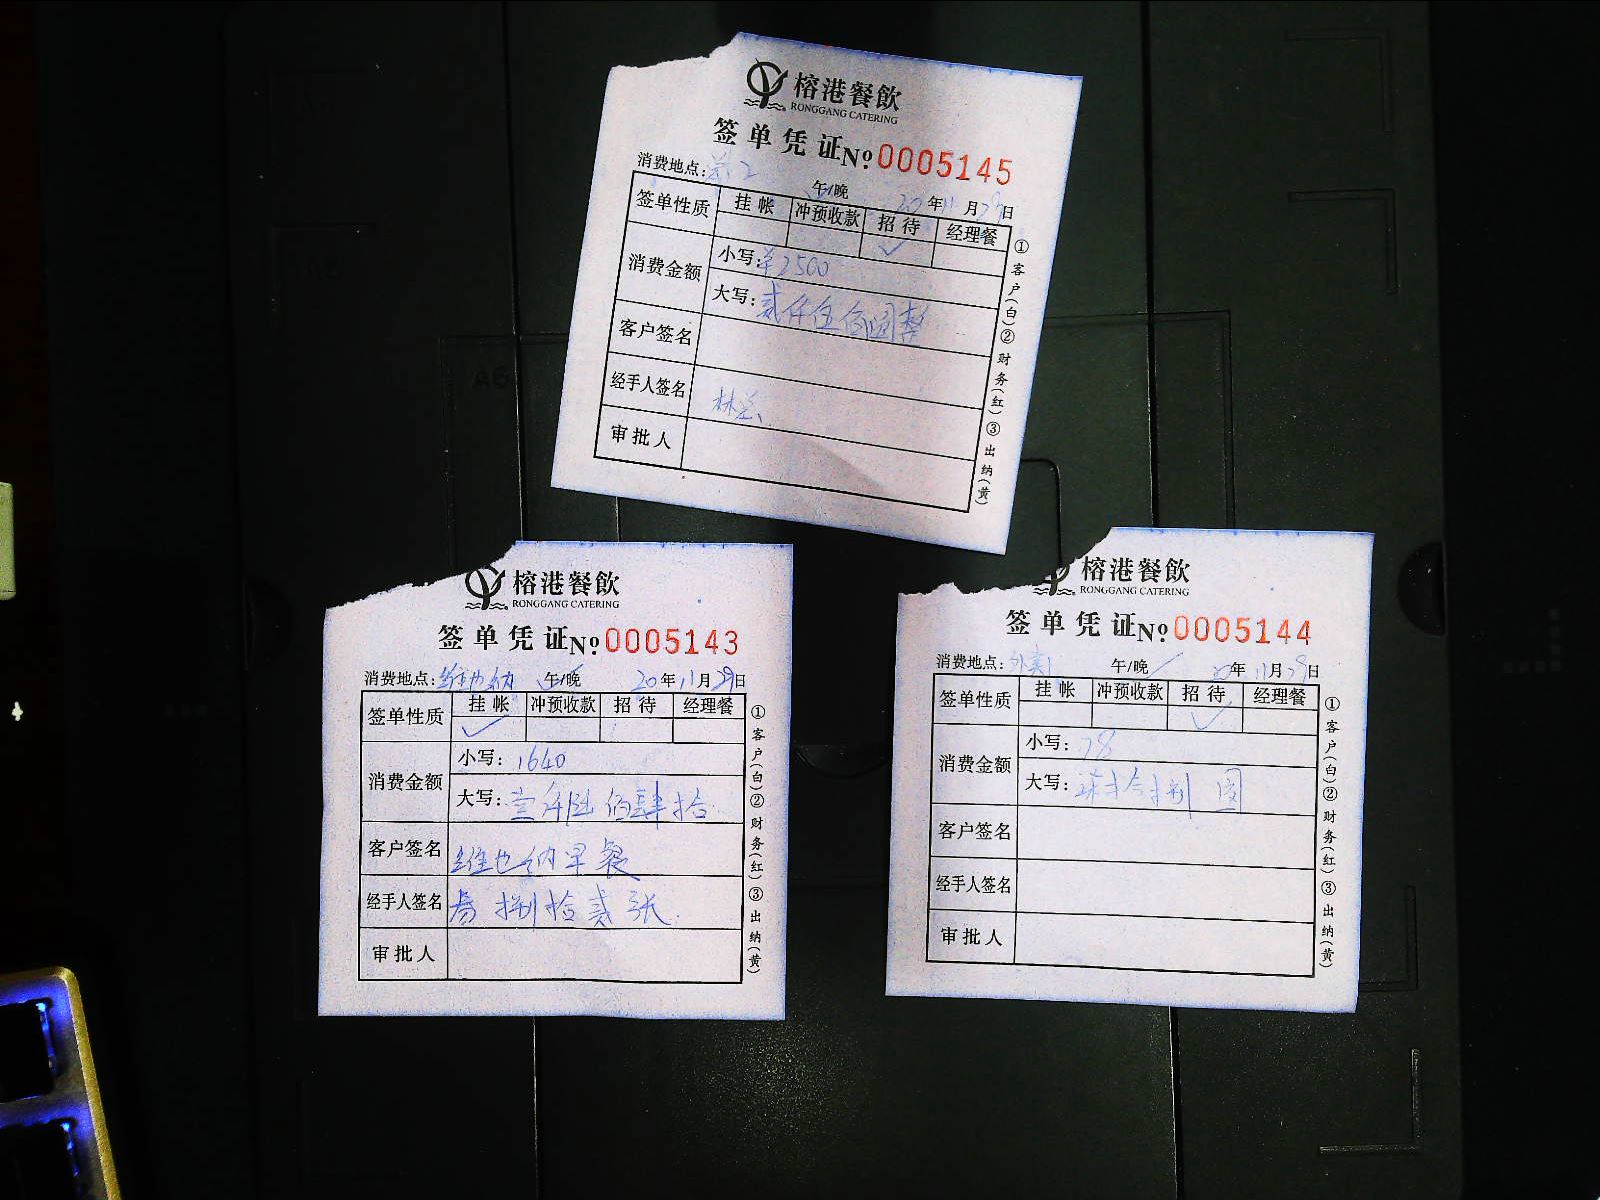 榕港餐飲
RONGGANG CATERING
签单凭证 №0005145
消费地点:
午/晚 20年11月29日
签单性质 挂帐 冲预收款 招待 经理餐
✓
消费金额 小写:¥2500
大写:贰仟伍佰圆整
客户签名
经手人签名 林总
审批人
①客户(白)②财务(红)③出纳(黄)
榕港餐飲
RONGGANG CATERING
签单凭证 №0005143
消费地点:维也纳 午/晚 20年11月29日
签单性质 挂帐 冲预收款 招待 经理餐
✓
消费金额 小写:1640
大写:壹仟陆佰肆拾
客户签名 维也纳早餐
经手人签名 券捌拾贰张
审批人
①客户(白)②财务(红)③出纳(黄)
榕港餐飲
RONGGANG CATERING
签单凭证 №0005144
消费地点:外卖1 午/晚 20年11月29日
签单性质 挂帐 冲预收款 招待 经理餐
✓
消费金额 小写:78
大写:柒拾捌圆
客户签名
经手人签名
审批人
①客户(白)②财务(红)③出纳(黄)